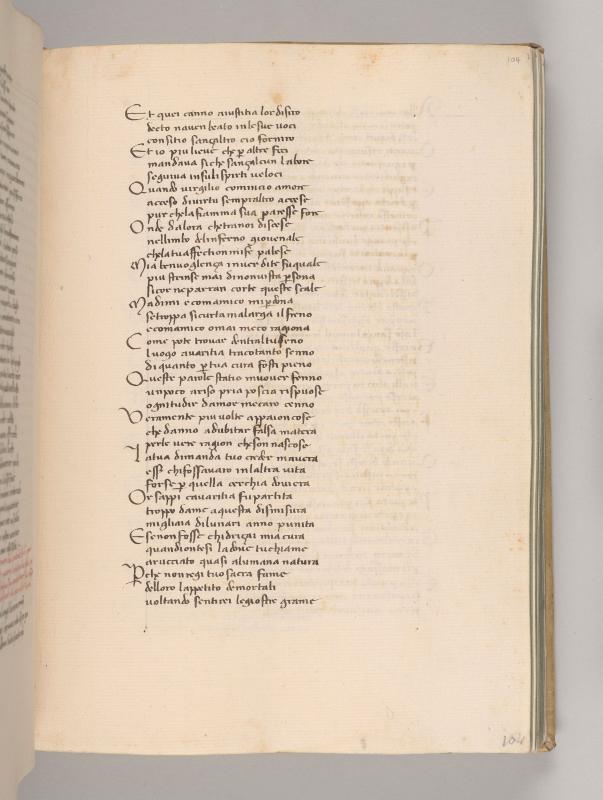 104
Et quei canno aiustitia lor disiro
decto naven beato in le sue voci
con sitio sanzaltro cio forniro
Et io piu lieve che p altre foci
mandava si che sanzalcun labore
seguiva insuli spirti veloci
Quando virgilio comincio amore
acceso divirtu sempraltro accese
pur chela fiamma sua paresse fore
Onde dalora che tranoi discese
nellimbo delinferno giovenale
chela tua affection mife palese
Mia benvoglenza inver dite fu quale
piu strinse mai dinonvista psona
sicor neparran corte queste scale
Madimi e comamico mi pdona
setroppa sicurta malarga il freno
e comamico omai meco ragiona
Come pote trovar dentral tu seno
luogo avaritia tracotanto senno
di quanto p tua cura fosti pieno
Queste parole statio muover fenno
unpoco ariso pria poscia rispuose
ognituo dir damor mecaro cenno
Veramente piu volte appaion cose
che danno adubitar falsa matera
perle vere ragion cheson nascose
La tua dimanda tuo creder mavera
esser chi fossavaro in laltra vita
forse p quella cerchia dovera
Or sappi cavaritia fu partita
troppo dame aquesta dismisura
migliaia dilunari anno punita
Ese non fosse chi drizai mia cura
quandio ntesi ladove tu chiame
crucciato quasi alumana natura
Pche non regi tu o sacra fame
delloro lappetito demortali
voltando sentirei legiostre grame
104